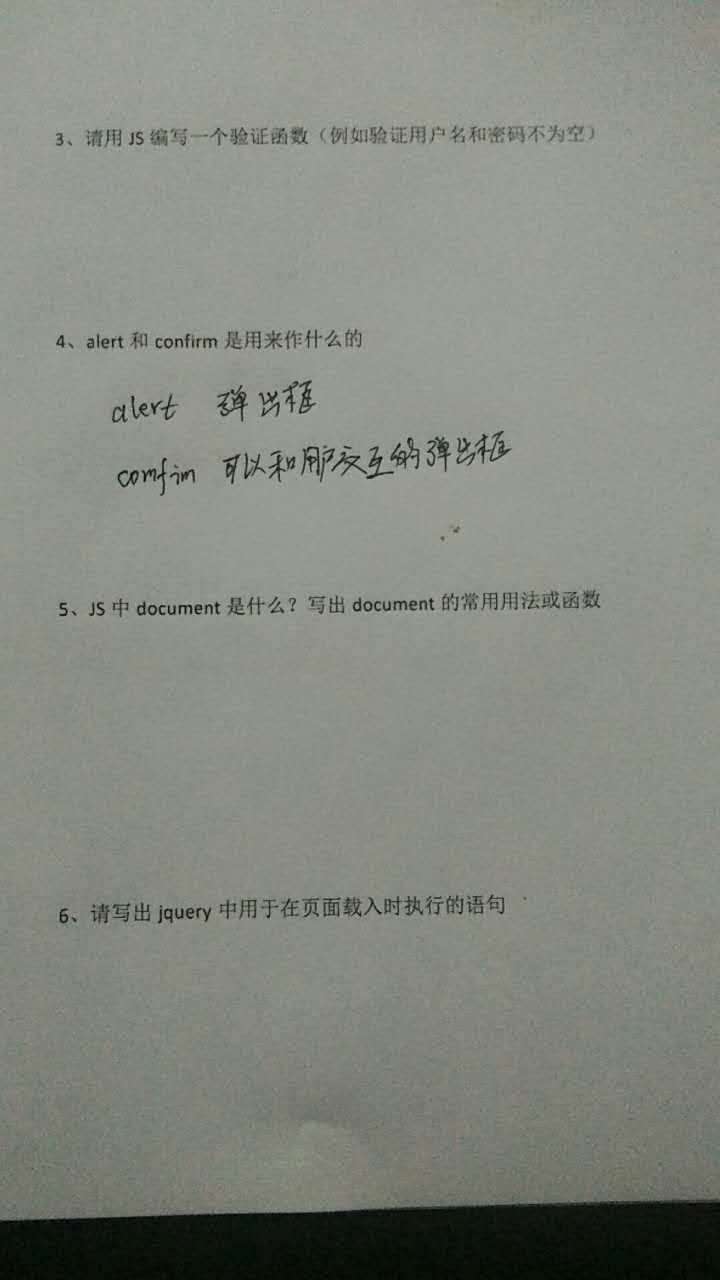 3、请用 JS 编写一个验证函数（例如验证用户名和密码不为空）
4、alert 和 confirm 是用来作什么的
alert 弹出框
comfim 可以和用户交互的弹出框
5、JS 中 document 是什么？写出 document 的常用用法或函数
6、请写出 jquery 中用于在页面载入时执行的语句